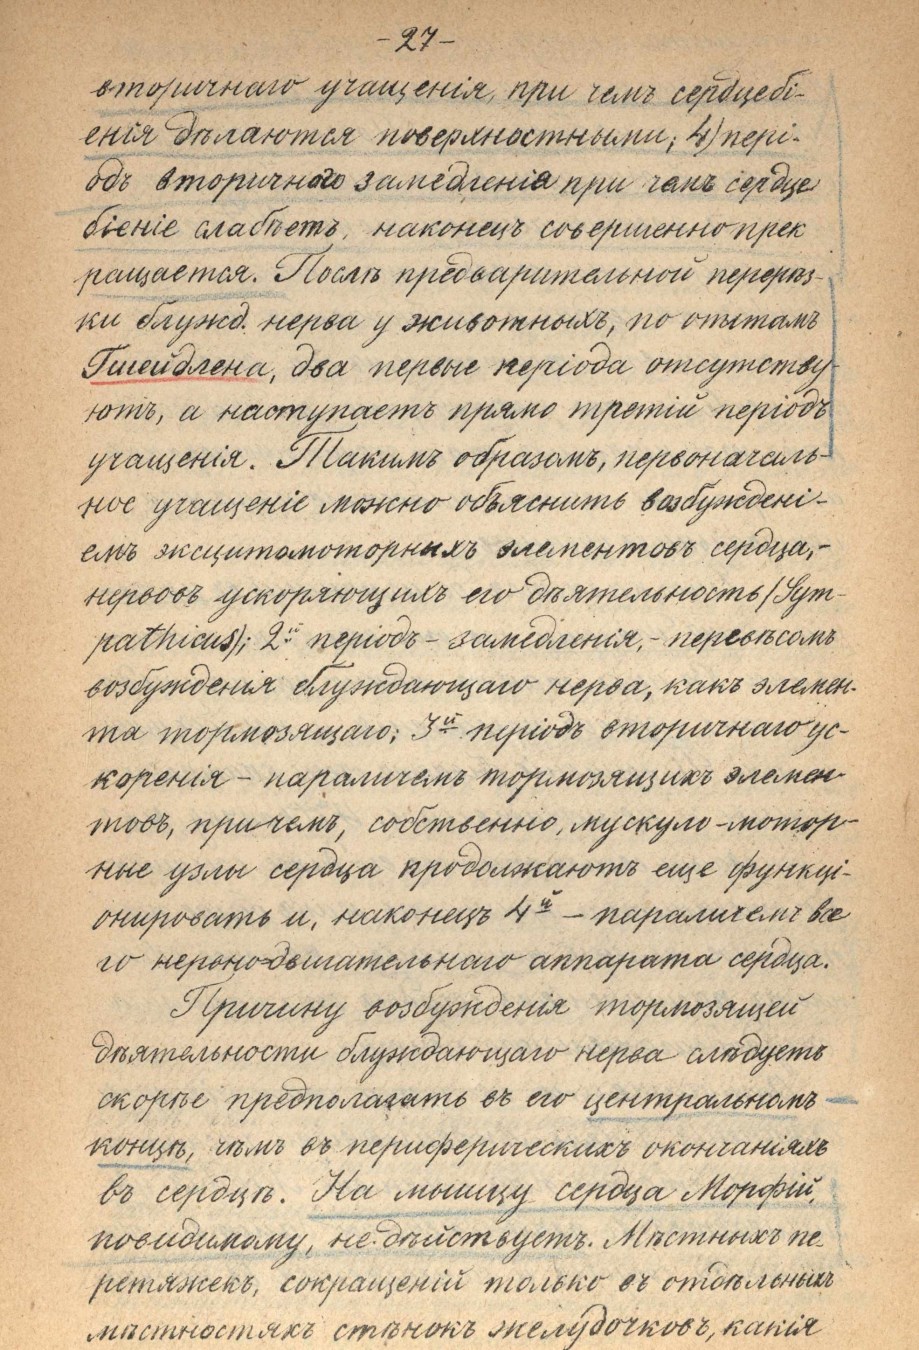 -27-
вторичнаго учащенія, при чемъ сердцебі-
енія дѣлаются поверхностными; 4) пері-
одъ вторичного замедленія при чемъ сердце
біеніе слабѣетъ, наконецъ совершенно прек
ращается. Послѣ предварительной перерѣз-
ки блужд. нерва у животныхъ, по опытамъ
Гшейдлена, два первые періода отсутству-
ютъ, а наступаетъ прямо третій періодъ
учащенія. Такимъ образомъ, первоначаль-
ное учащеніе можно объяснить возбуждені-
емъ эксцитомоторныхъ элементовъ сердца,-
нервовъ ускоряющихъ его дѣятельность (Sym-
pathicus); 2й періодъ - замедленія, - перевѣсомъ
возбужденія блуждающаго нерва, какъ элемен-
та тормозящаго; 3й періодъ вторичнаго ус-
коренія - параличемъ тормозящихъ элемен-
товъ, причемъ, собственно, мускуло-мотор-
ные узлы сердца продолжаютъ еще функці-
онировать и, наконецъ 4й - параличемъ все
го нервно-двигательнаго аппарата сердца.
Причину возбужденія тормозящей
дѣятельности блуждающаго нерва слѣдуетъ
скорѣе предполагать въ его центральномъ
концѣ, чѣмъ въ периферическихъ окончаніяхъ
въ сердцѣ. На мышцу сердца Морфій,
повидимому, не дѣйствуетъ. Мѣстныхъ пе-
ретяжекъ, сокращеній только въ отдѣльныхъ
мѣстностяхъ стѣнокъ желудочковъ, какія